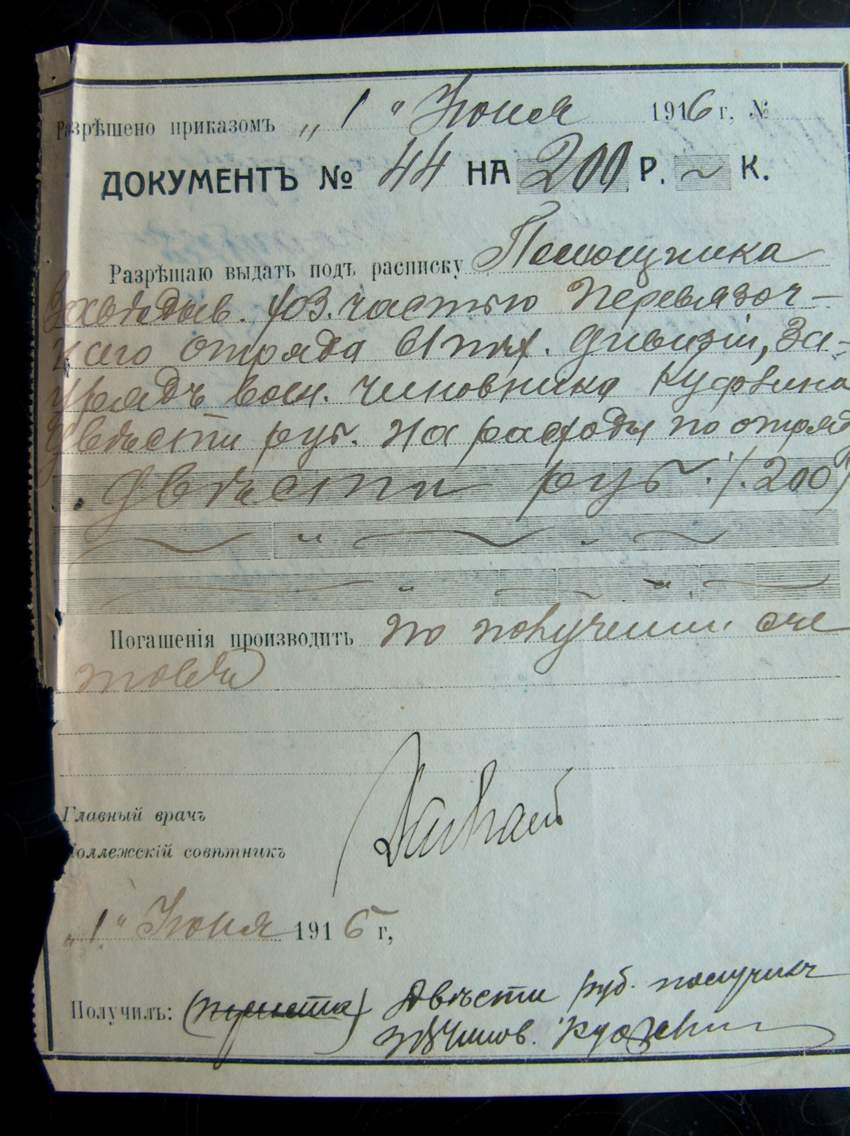 Разрѣшено приказомъ „1" Іюня 1916 г. №
ДОКУМЕНТЪ № 44 НА 200 Р. ~ К.
Разрѣшаю выдать подъ расписку Помощника
Завѣдыв. хоз. частью перевязоч-
наго отряда пѣх. дивизіи, за-
урядъ воен. чиновника
Двѣсти руб. на расходы по отряд
Двѣсти руб. /. 200
Погашенія производить по полученіи сче
товъ
Главный врачъ
Коллежскій совѣтникъ
„1" Іюня 1916 г,
Получилъ: Двѣсти руб. получилъ